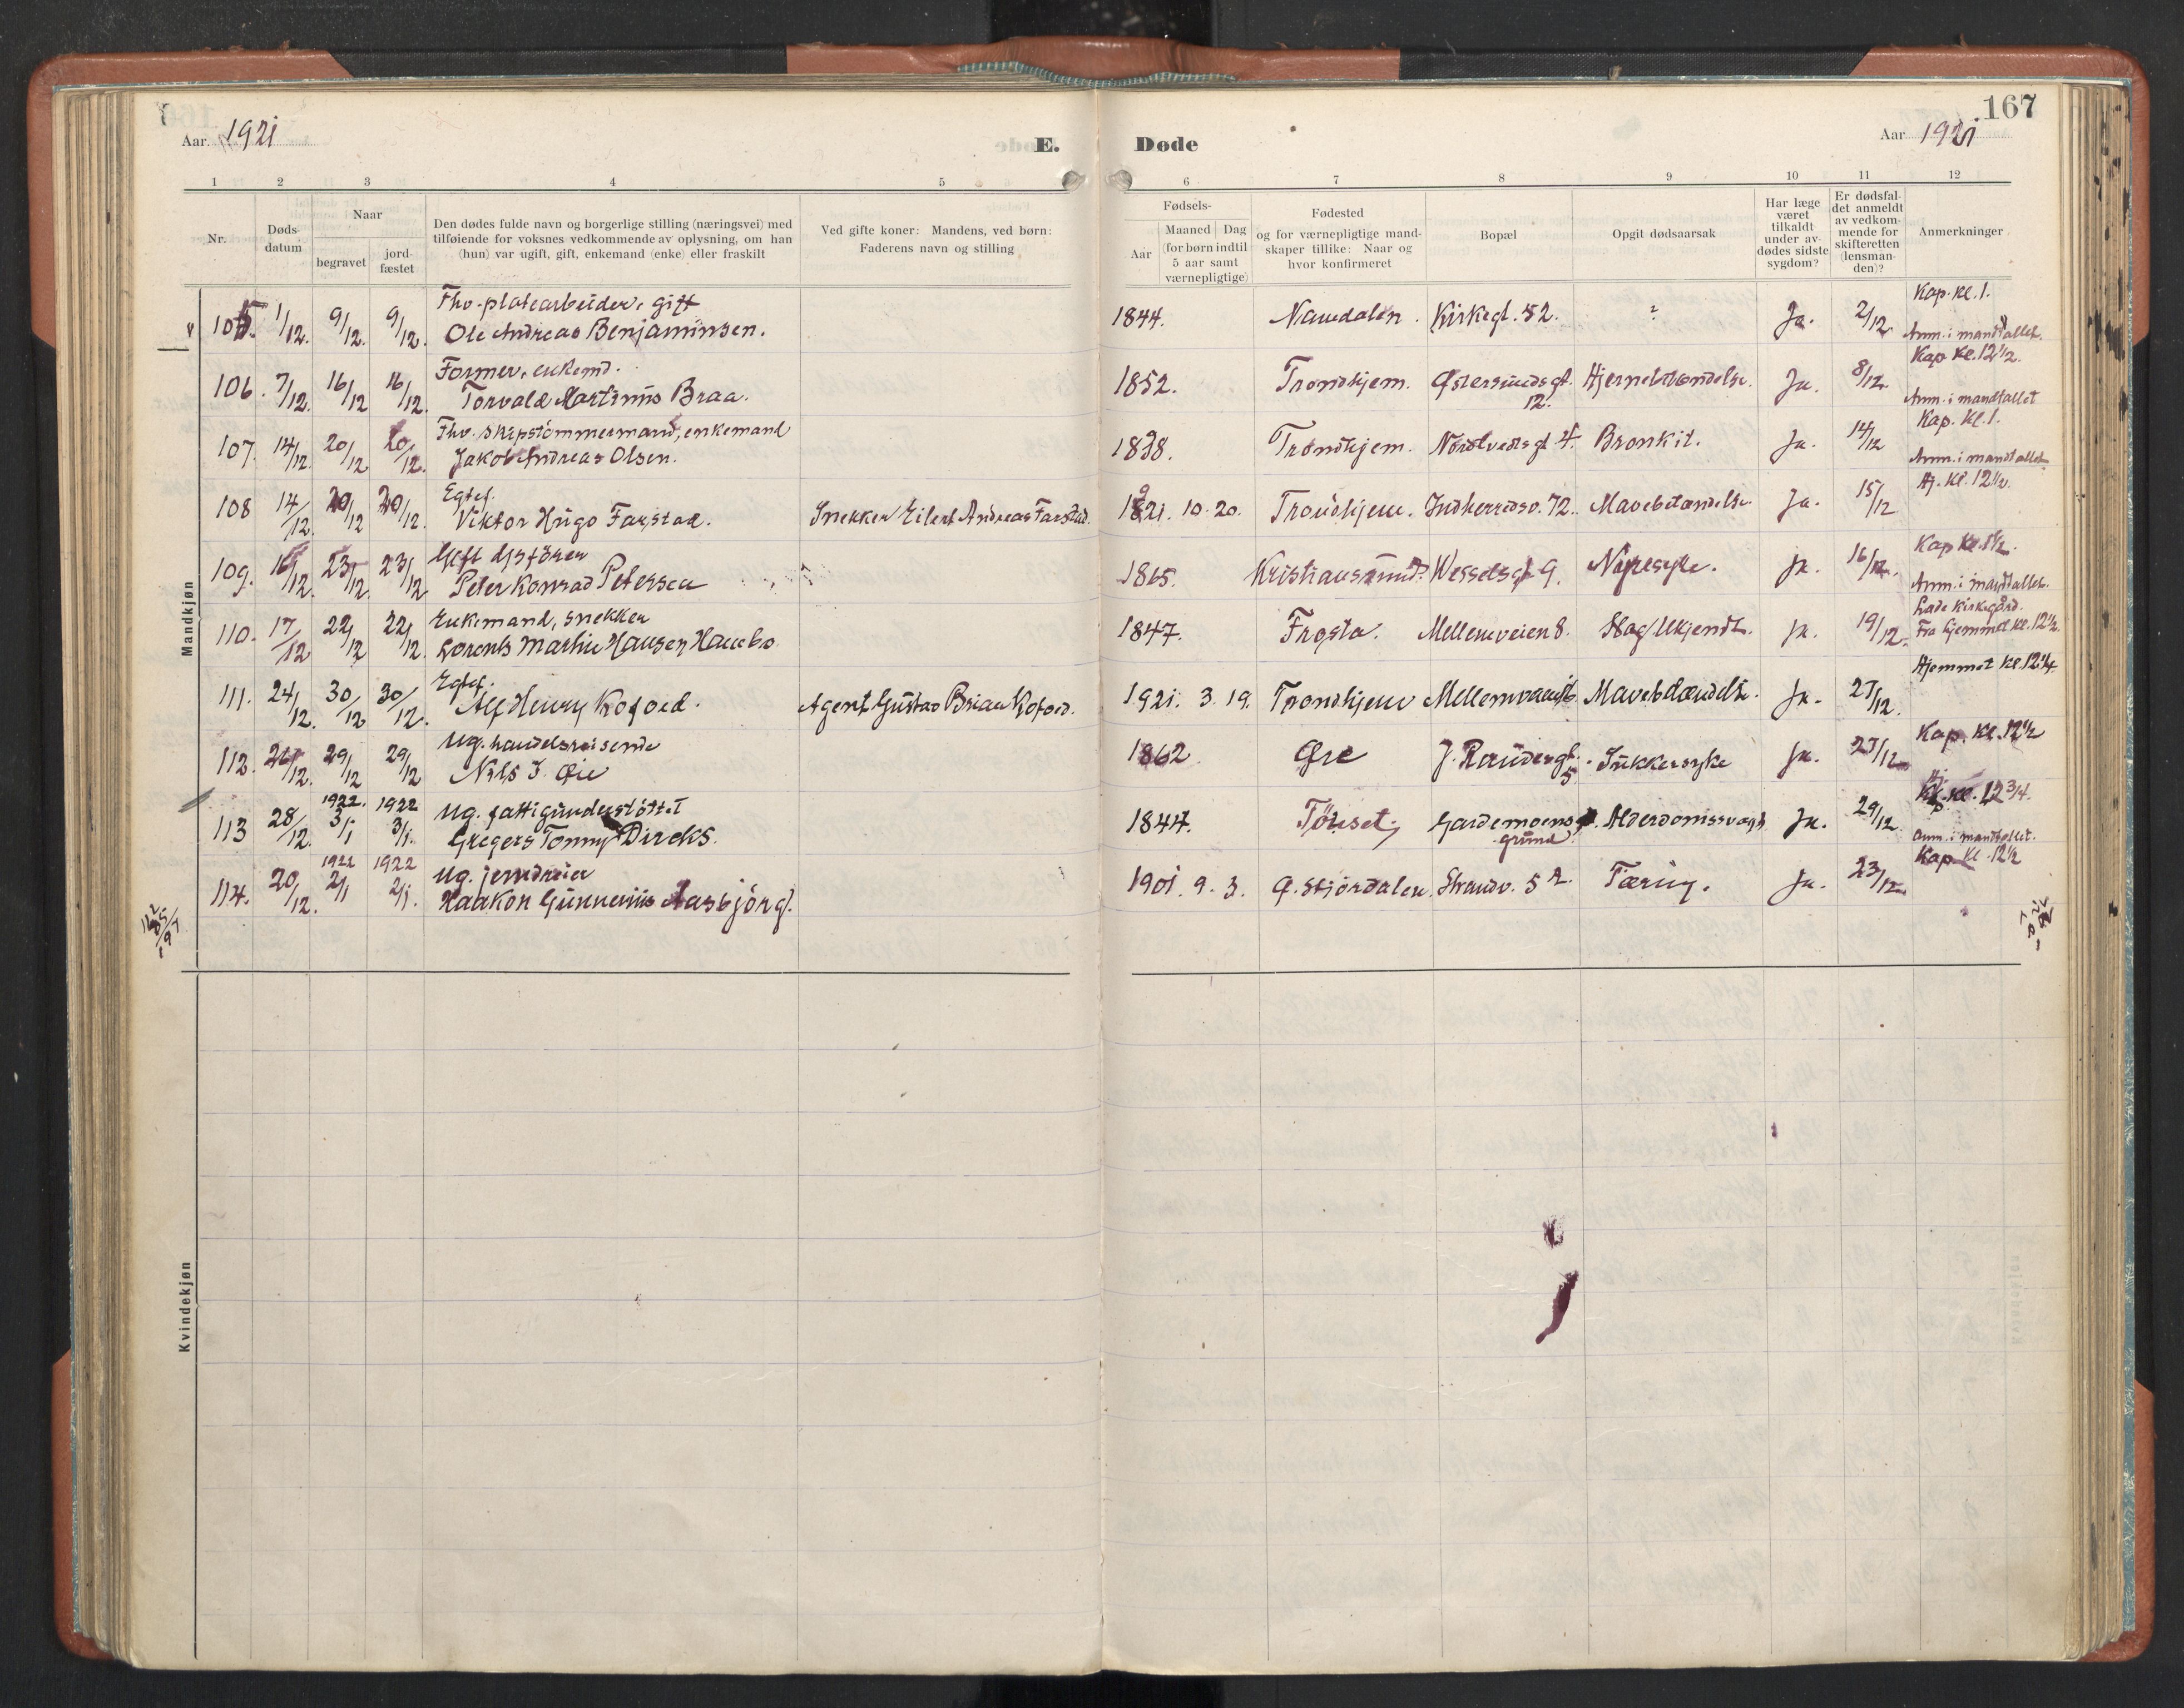 167
Aar 1921
E. Døde
Aar 1921
1 2 3 4 5 6 7 8 9 10 11 12
Nr.
Døds-
datum
Naar
begravet
jord-
fæstet
Den dødes fulde navn og borgerlige stilling (næringsvei) med
tilføiende for voksnes vedkommende av oplysning, om han
(hun) var ugift, gift, enkemand (enke) eller fraskilt
Ved gifte koner: Mandens, ved børn:
Faderens navn og stilling
Fødsels-
Aar
Maaned Dag
(for børn indtil
5 aar samt
værnepligtige)
Fødested
og for værnepligtige mand-
skaper tillike: Naar og
hvor konfirmeret
Bopæl
Opgit dødsaarsak
Har læge
været
tilkaldt
under av-
dødes sidste
sygdom?
Er dødsfal-
det anmeldt
av vedkom-
mende for
skifteretten
(lensman-
den)?
Anmerkninger
Mandkjøn
Fhv. platearbeider, gift Kap. kl. 1.
105. 1/12. 9/12. 9/12. Ole Andreas Benjaminsen. 1844. Namdalen. Kirkegt. 52. ? Ja. 2/12 Anm. i mandtallet.
Former, enkemd. Kap kl. 12 1/2.
106. 7/12. 16/12 16/12. Torvald Martinus Braa. 1852. Trondhjem. Østersundsgt. 12. Hjernebetændelse. Ja. 8/12 Anm. i mandtallet
Fhv. skipstömmermand, enkemand Kap. kl. 1.
107. 14/12. 20/12 20/12. Jakob Andreas Olsen. 1838. Trondhjem. gt 4. Bronkit. Ja. 14/12 Anm. i mandtallet
Egtef. Hj. kl. 12 1/2.
108 14/12. 20/12 20/12. Viktor Hugo Farstad. Snekker Eilert Andreas Farstad. 1921. 10. 20. Trondhjem. Indherredsv. 72. Mavebetændelse Ja. 15/12
Gift Kap kl.
109. 16/12. 23/12. 23/12 Peter Konrad Petersen 1865. Kristiansund. Wesselsgt 9. Nyresyke. Ja. 16/12. Anm. i mandtallet.
Enkemand, snekker Lade kirkegård.
110. 17/12 22/12 22/12. Lorents Martin Hansen 1847. Frosta. Mellemveien 8. Slag/Ukjendt. Ja. 19/12. Fra hjemmet kl. 12 1/2.
Egtef. Hjemmet kl. 12 1/4.
111. 24/12. 30/12 30/12. Alf Henry Kofoed. Agent Gustav Kofoed. 1921. 3. 19. Trondhjem Mavebetændelse. Ja. 27/12.
Ug. handelsreisende Kap. kl. 12 1/2
112. 26/12. 29/12 29/12 Nils J. Øie 1862 Øre 5. Sukkersyke Ja. 27/12
1922. 1922 Ug. fattigunderstöttet 12 3/4.
113 28/12. 3/1 3/1. Gregers Tonny Dircks. 1844. Tönset, Gardemoens grund. Alderdomssvagh. Ja. 29/12 Anm. i mandtallet.
1922 1922 Ug. jerndreier Kap. kl. 12 1/2
114. 20/12. 2/1 2/1. Haakon Gunnerius Aasbjörg. 1901. 9. 3. Ø. Stjördalen. Strandv. 52. Tæring. Ja. 23/12
Kvindekjøn